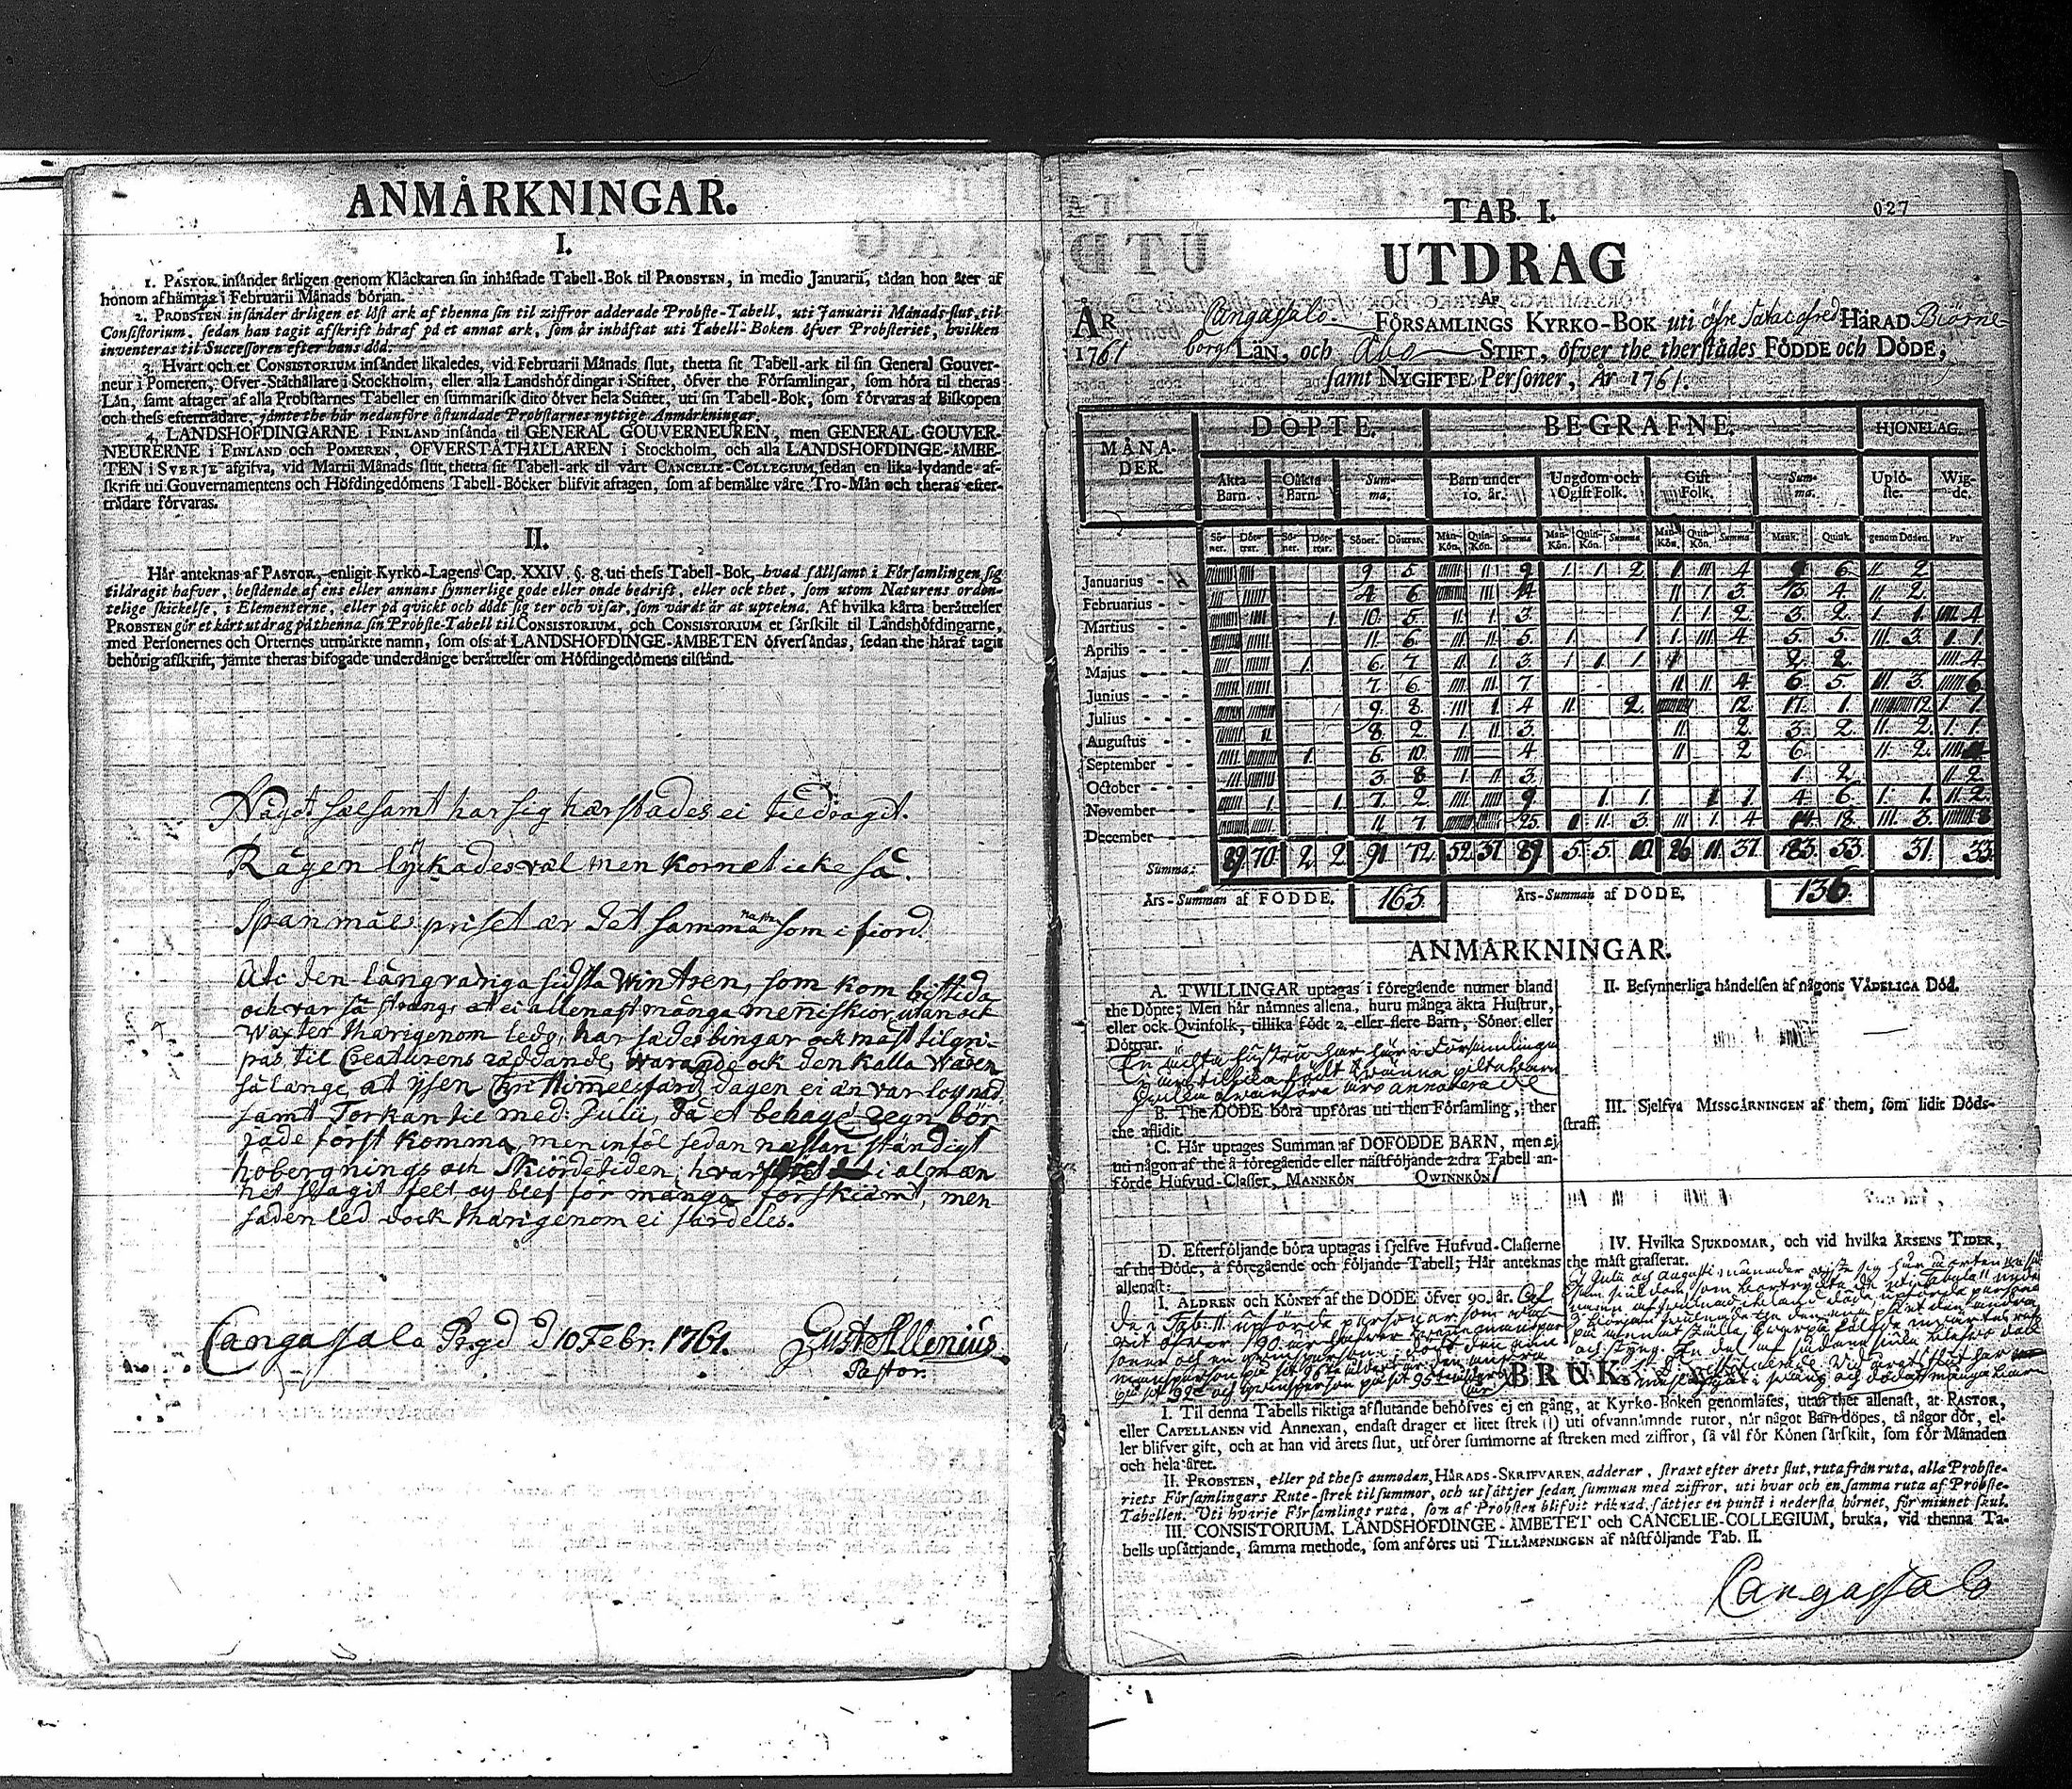 ANMÄRKNINGAR.
I.
1. PASTOR insänder årligen genom Klåckaren sin inhäftade Tabell-Bok til PROBSTEN, in medio Januarii, tådan hon åter af
honom afhämtas i Februarii Månads början.
2. PROBSTEN insänder årligen et löst ark af thenna sin til ziffror adderade Probste-Tabell, uti Januarii Månads slut, til
Consistorium, sedan han tagit afskrift häraf på et annat ark, som är inhäftat uti Tabell-Boken öfver Probsteriet, hvilken
inventeras til Successoren efter hans död.
3. Hvart och et CONSISTORIUM insänder likaledes, vid Februarii Månads slut, thetta sit Tabell-ark til sin General Gouver-
neur i Pomeren, Öfver-Ståthållare i Stockholm, eller alla Landshöfdingar i Stiftet, öfver the Församlingar, som höra til theras
Län, samt aftager af alla Probstarnes Tabeller en summarisk dito öfver hela Stiftet, uti sin Tabell-Bok, som förvaras af Biskopen
och thess efterträdare, jämte the här nedanföre åstundade Probstarnes nyttige Anmärkningar.
4. LANDSHÖFDINGARNE i FINLAND insända til GENERAL GOUVERNEUREN, men GENERAL GOUVER-
NEURERNE i FINLAND och POMEREN, ÖFVERSTÅTHÅLLAREN i Stockholm, och alla LANDSHÖFDINGE-ÄMBE-
TEN i SVERJE afgifva, vid Martii Månads slut, thetta sit Tabell-ark til vårt CANCELIE-COLLEGIUM, sedan en lika lydande af-
skrift uti Gouvernamentens och Höfdingedömens Tabell-Böcker blifvit aftagen, som af bemälte våre Tro-Män och theras efter-
trädare förvaras.
II.
Här anteknas af PASTOR, enligit Kyrko-Lagens Cap. XXIV. §. 8. uti thess Tabell-Bok, hvad sällsamt i Församlingen sig
tildragit hafver, bestående af ens eller annans synnerlige gode eller onde bedrift, eller ock thet, som utom Naturens orden-
telige skickelse, i Elementerne, eller på qvickt och dödt sig ter och visar, som värdt är at uptekna. Af hvilka korta berättelser
PROBSTEN gör et kort utdrag på thenna sin Probste-Tabell til CONSISTORIUM, och CONSISTORIUM et särskilt til Landshöfdingarne,
med Personernes och Orternes utmärkte namn, som oss af LANDSHÖFDINGE-ÄMBETEN öfversändas, sedan the häraf tagit
behörig afskrift, jämte theras bifogade underdånige berättelser om Höfdingedömens tilstånd.
Något sælsamt har sig hærstædes ei tiedragit.
Rågen lyckades væl men Kornet icke så.
Spanmåls priset ær det samma næstan som i fiord.
Uti den långvariga sidsta Wintren, som kom bittida
och var så sträng, at ei allenast många menniskior, utan ock
Wæxter thærigenom ledo, har sædes bingar och mæst tilgri-
pas til Creaturens ræddande, warande ock den kalla Wåren
så lange, at ysen Chri Himmelsfærds dagen ei æn var
samt Torkan til med: Julii, då et behagl regn bör-
jade først komma, men inföl sedan næstan ständigt
höbergnings och Skiördetiden, hvar i almæn-
het slagit felt och blef för många forskiæmt, men
sæden led dock thærigenom ei særdeles.
Cangassala Pr.gd d 10 Febr. 1761. Gust Allenius
Pastor.
TAB. I. 027
UTDRAG
AF
ÅR Cangassala FÖRSAMLINGS KYRKO-BOK uti öfre Satac ofred HÄRAD Biörne-
1761 borgs LÄN, och Åbo STIFT, öfver the therstädes FÖDDE och DÖDE,
samt NYGIFTE Personer, År 1761.
MÅNA-DER. DÖPTE. BEGRAFNE. HJONELAG.
Äkta Barn. Oäkta Barn. Summa. Barn under 10. år. Ungdom och Ogift Folk. Gift Folk. Summa. Uplöste. Wigde.
Söner. Döttrar. Söner. Döttrar. Söner. Döttrar. Mankön. Quinkön. Summa Mankön. Quinkön. Summa Mankön. Quinkön. Summa Mank. Quink. genom Döden. Par
Januarius 9 5 9 1 1 2 4 9 6 2
Februarius 4 6 14 3 13 4 2
Martius 1 10 5 3 2 3 2 1 4
Aprilis 11 6 5 1 1 4 5 5 3 1
Majus 1 6 7 3 1 1 1 2 2 4
Junius 7 6 7 4 6 5 3 6
Julius 9 8 4 2 12 17 1 12 7
Augustus 8 2 3 2 3 2 2 1
September 1 6 10 4 2 6 2
October 3 8 3 1 2 2
November 1 7 2 9 1 1 1 4 6 1 2
December 11 7 25 3 4 14 18 3 8
Summa: 89 70 2 2 91 72 52 37 89 5 5 10 26 11 37 83 53 31 33
Års-Summan af FÖDDE. 163. Års-Summan af DÖDE. 136
ANMÄRKNINGAR.
A. TWILLINGAR uptagas i föregående numer bland
the Döpte; Men här nämnes allena, huru många äkta Hustrur,
eller ock Qvinfolk, tillika födt 2, eller flere Barn, Söner eller
Döttrar.
En ächta hustru har här i Församlingen
B. The DÖDE böra upföras uti then Församling, ther
the aflidit.
C. Här uptages Summan af DÖFÖDDE BARN, men ej
uti någon af the å föregående eller nästföljande 2dra Tabell an-
förde Hufvud-Classer, MANNKÖN QWINNKÖN 1
D. Efterföljande böra uptagas i sjelfve Hufvud-Classerne
af the Döde, å föregående och följande Tabell; Här anteknas
allenast:
I. ÅLDREN och KÖNET af the DÖDE öfver 90. år. Af
de i Tab. II. upförde personer som
II. Besynnerliga händelsen af någons VÅDELIGA Död.
III. Sjelfva MISSGÄRNINGEN af them, som lidit Döds-
straff.
IV. Hvilka SJUKDOMAR, och vid hvilka ÅRSENS TIDER,
the mäst grasserat.
I Julii och Augusti månader
BRUK.
I. Til denna Tabells riktiga afslutande behöfves ej en gång, at Kyrko-Boken genomläses, utan ther allenast, at PASTOR,
eller CAPELLANEN vid Annexan, endast drager et litet strek (|) uti ofvannämnde rutor, när något Barn döpes, tå någor dör, el-
ler blifver gift, och at han vid årets slut, utförer summorne af streken med ziffror, så väl för Könen särskilt, som för Månaden
och hela året.
II. PROBSTEN, eller på thess anmodan, HÄRADS-SKRIFVAREN, adderar, straxt efter årets slut, ruta från ruta, alla Probste-
riets Församlingars Rute-strek til summor, och utsättjer sedan summan med ziffror, uti hvar och en samma ruta af Probste-
Tabellen. Uti hvarje Församlings ruta, som af Probsten blifvit räknad, sättjes en punct i nedersta hörnet, för minnet skul.
III. CONSISTORIUM, LANDSHÖFDINGE-ÄMBETET och CANCELIE-COLLEGIUM, bruka, vid thenna Ta-
bells upsättjande, samma methode, som anföres uti TILLÄMPNINGEN af nästföljande Tab. II.
Cangassala